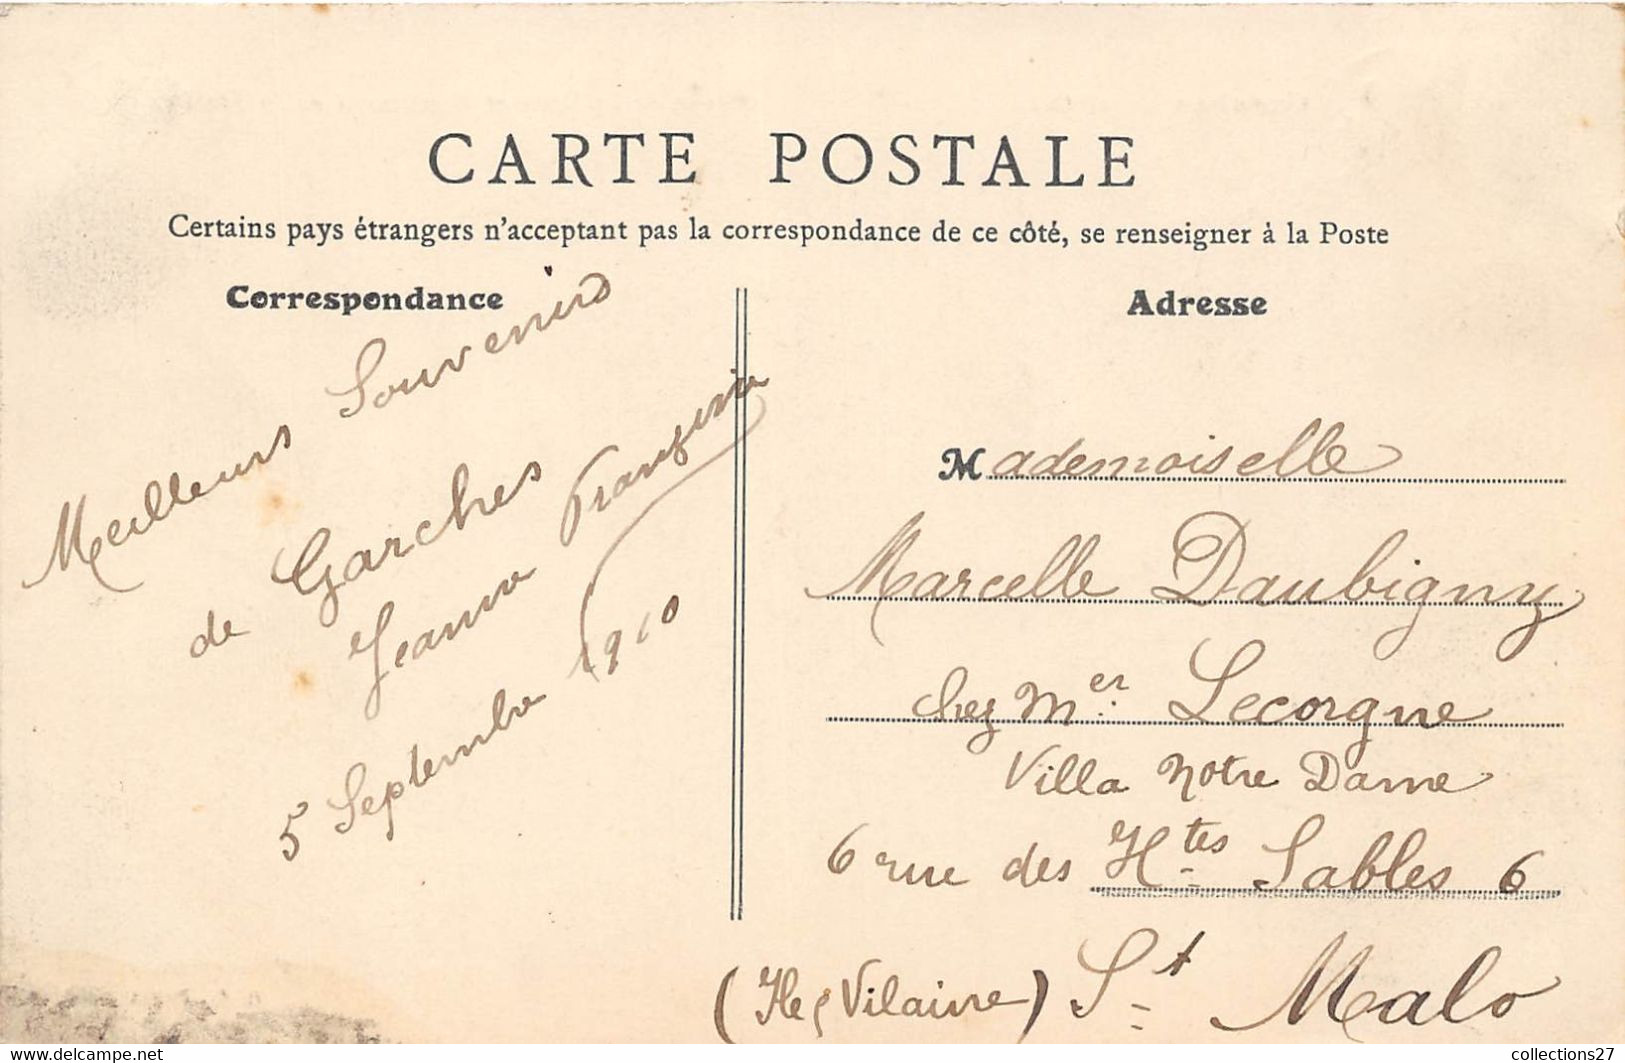 CARTE POSTALE
Certains pays étrangers n'acceptant pas la correspondance de ce côté, se renseigner à la Poste
Correspondance
Meilleurs Souvenirs
de Garches
Jeanne
5 Septembre 1910
Adresse
Mademoiselle
Marcelle Daubigny
chez Mer. Lecorgne
Villa Notre Dame
6 rue des Htes Sables 6
(Ile & Vilaine) St Malo
collections27